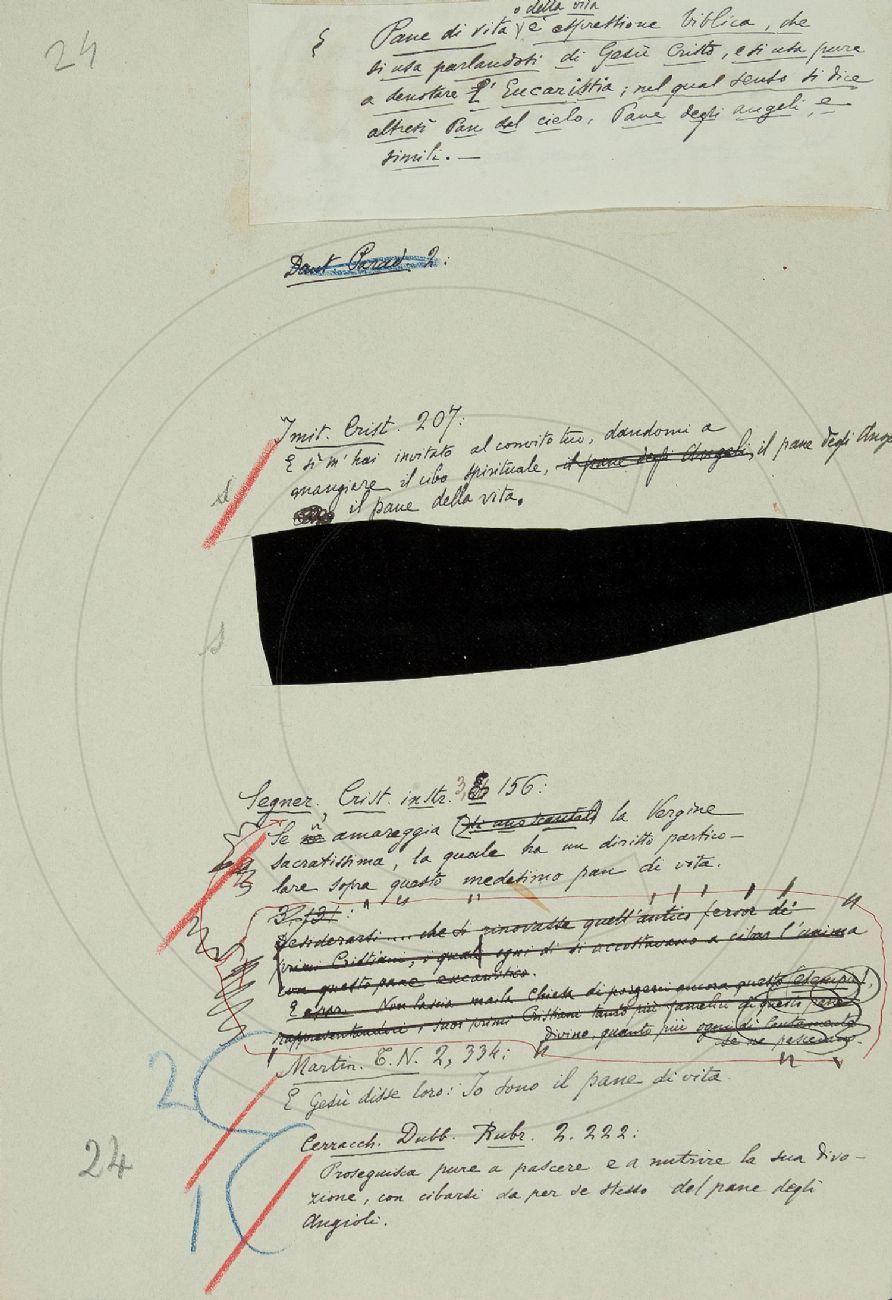 24
o della vita
§ Pane di vita è espressione biblica, che
si usa parlandosi di Gesù Cristo, e si usa pure
a denotare l'Eucaristia; nel qual senso si dice
altresì Pan del cielo, Pane degli angeli, e
simili. —
Dant. Parad. 2:
Imit. Crist. 207:
E sì m'hai invitato al convito tuo, dandomi a
mangiare il cibo spirituale, il pane degli Angeli, il pane degli Ange
il pane della vita.
s
Segner. Crist. instr. 3, 156:
Se n' amareggia la Vergine
sacratissima, la quale ha un diritto partico-
lare sopra questo medesimo pan di vita.
desiderarsi .... che si rinovasse quell'antico fervor dei
primi Cristiani, i quali ogni dì si accostavano a cibar l'anima
con questo pane eucaristico.
E Non lascia mai la Chiesa di porgerci ancora questo esempio,
rappresentandoci i suoi primi Cristiani tanto più famelici di questo pane
divino, quanto più ogni dì lautamente
se ne pascevano.
2
Martin. T. N. 2, 334:
E Gesù disse loro: Io sono il pane di vita
24
1
Cerracch. Dubb. Rubr. 2. 222:
Proseguisca pure a pascere e a nutrire la sua divo-
zione, con cibarsi da per se stesso del pane degli
Angioli.